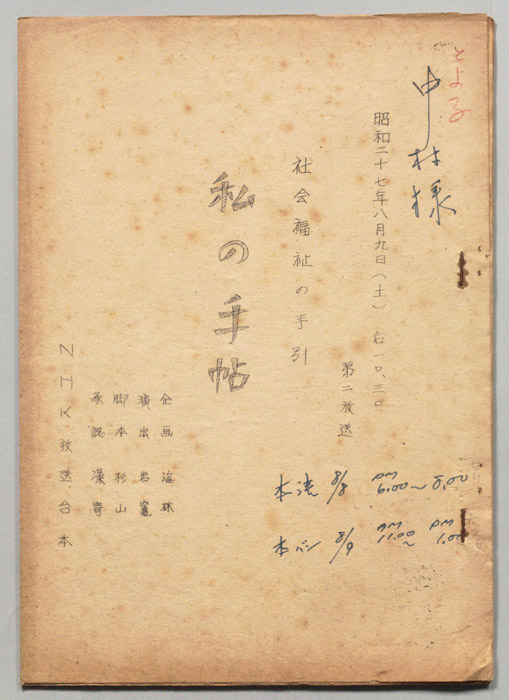 とよ子
中村様
昭和二十七年八月九日(土) 后一〇、三〇
第二放送
社会福祉の手引
私の手帖
企画 海林
演出 岩窪
脚本 杉山
承認 漢嵜
NHK放送台本
本読 8/8 PM 6.00〜8.00
本バン 8/9 am 11.00〜 PM 1.00